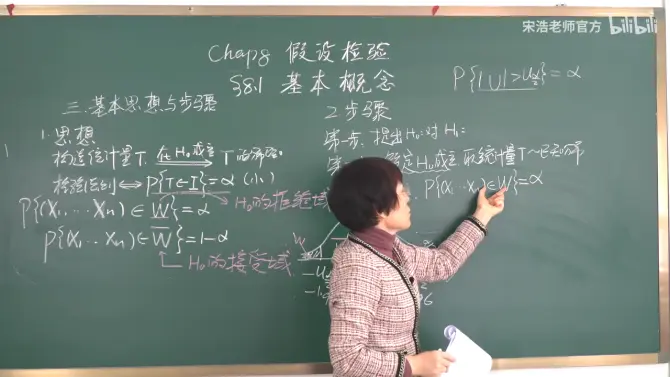 宋浩老师官方 bilibili
Chap8 假设检验
§8.1 基本概念
P{|U|>U α/2}=α
三.基本思想与步骤
1.思想
构造统计量T, 在H₀成立 T的
P{T∈I}=α (小)
P{(X₁,…Xn)∈W}=α
H₀的拒绝域
P{(X₁…Xn)∈W̅}=1-α
H₀的接受域
2 步骤
第一步,提出H₀:对H₁:
H₀成立 取统计量T~已知
P{(X₁…Xn)∈W}=α